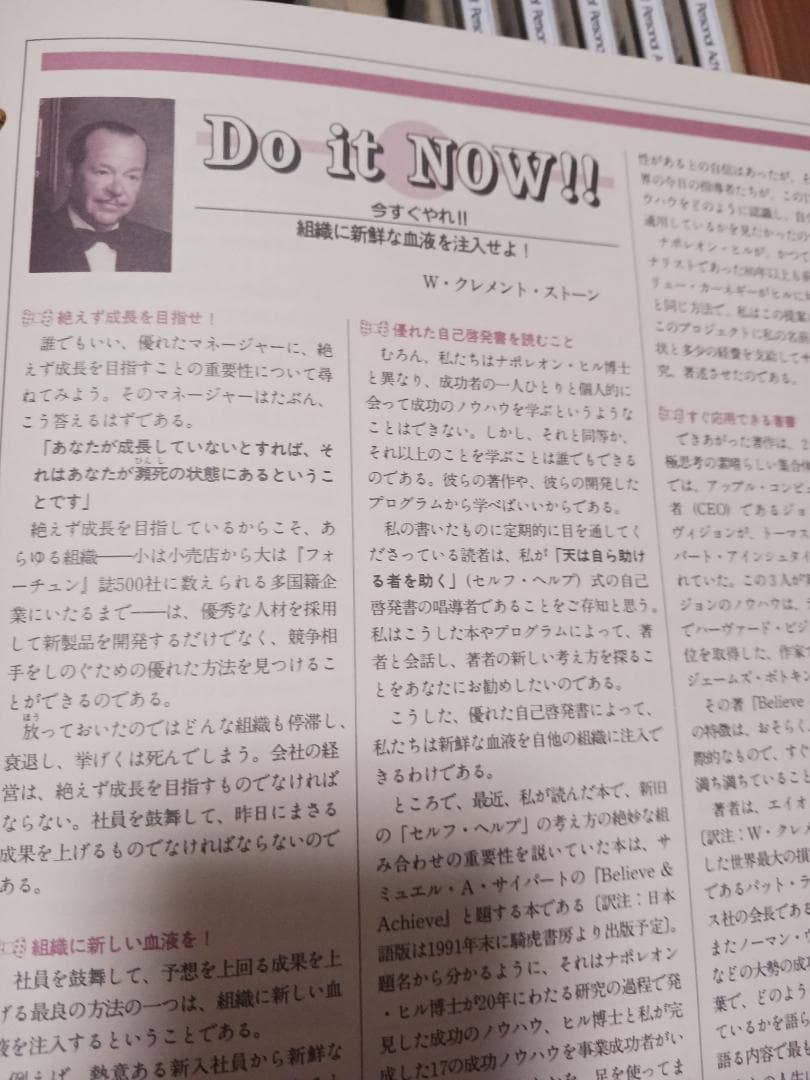 Personal Ach
Do it NOW!!
今すぐやれ!!
組織に新鮮な血液を注入せよ！
W・クレメント・ストーン
絶えず成長を目指せ！
誰でもいい、優れたマネージャーに、絶
えず成長を目指すことの重要性について尋
ねてみよう。そのマネージャーはたぶん、
こう答えるはずである。
「あなたが成長していないとすれば、そ
れはあなたが瀕死の状態にあるというこ
とです」
絶えず成長を目指しているからこそ、あ
らゆる組織——小は小売店から大は『フォ
ーチュン』誌500社に数えられる多国籍企
業にいたるまで——は、優秀な人材を採用
して新製品を開発するだけでなく、競争相
手をしのぐための優れた方法を見つけるこ
とができるのである。
放っておいたのではどんな組織も停滞し、
衰退し、挙げくは死んでしまう。会社の経
営は、絶えず成長を目指すものでなければ
ならない。社員を鼓舞して、昨日にまさる
成果を上げるものでなければならないので
ある。
組織に新しい血液を！
社員を鼓舞して、予想を上回る成果を上
げる最良の方法の一つは、組織に新しい血
液を注入するということである。
例えば、熱意ある新入社員から新鮮な
優れた自己啓発書を読むこと
むろん、私たちはナポレオン・ヒル博士
と異なり、成功者の一人ひとりと個人的に
会って成功のノウハウを学ぶというような
ことはできない。しかし、それと同等か、
それ以上のことを学ぶことは誰でもできる
のである。彼らの著作や、彼らの開発した
プログラムから学べばいいからである。
私の書いたものに定期的に目を通してく
ださっている読者は、私が「天は自ら助け
る者を助く」(セルフ・ヘルプ）式の自己
啓発書の唱導者であることをご存知と思う。
私はこうした本やプログラムによって、著
者と会話し、著者の新しい考え方を探るこ
とをあなたにお勧めしたいのである。
こうした、優れた自己啓発書によって、
私たちは新鮮な血液を自他の組織に注入で
きるわけである。
ところで、最近、私が読んだ本で、新旧
の「セルフ・ヘルプ」の考え方の絶妙な組
み合わせの重要性を説いていた本は、サ
ミュエル・A・サイパートの『Believe &
Achieve』と題する本である〔訳注：日本
語版は1991年末に騎虎書房より出版予定〕。
題名から分かるように、それはナポレオン
・ヒル博士が20年にわたる研究の過程で発
見した成功のノウハウ、ヒル博士と私が完
成した17の成功ノウハウを事業成功者がい
足を使ってま
性があるとの自信はあったが、そ
界の今日の指導者たちが、この17
ウハウをどのように認識し、自
適用しているかを見たかったの
ナポレオン・ヒルが、かつて
ナリストであった80年以上も前
リュー・カーネギーがヒルに
と同じ方法で、私はこの提案
このプロジェクトに私の名前
状と多少の経費を支給してサ
究、著述させたのである。
すぐ応用できる著書
できあがった著作は、2
極思考の素晴らしい集合体
では、アップル・コンピュ
者（CEO）であるジョ
ヴィジョンが、トーマス
バート・アインシュタイ
れていた。この3人が
ジョンのノウハウは、
でハーヴァード・ビジ
位を取得した、作家で
ジェームズ・ボトキン
その著『Believe
の特徴は、おそらく、
際的なもので、すぐ
満ち満ちていること
著者は、エイオ
〔訳注：W・クレメ
した世界最大の損
であるパット・ラ
ス社の会長である
またノーマン・ウ
などの大勢の成功
葉で、どのよう
ているかを語ら
語る内容で最も